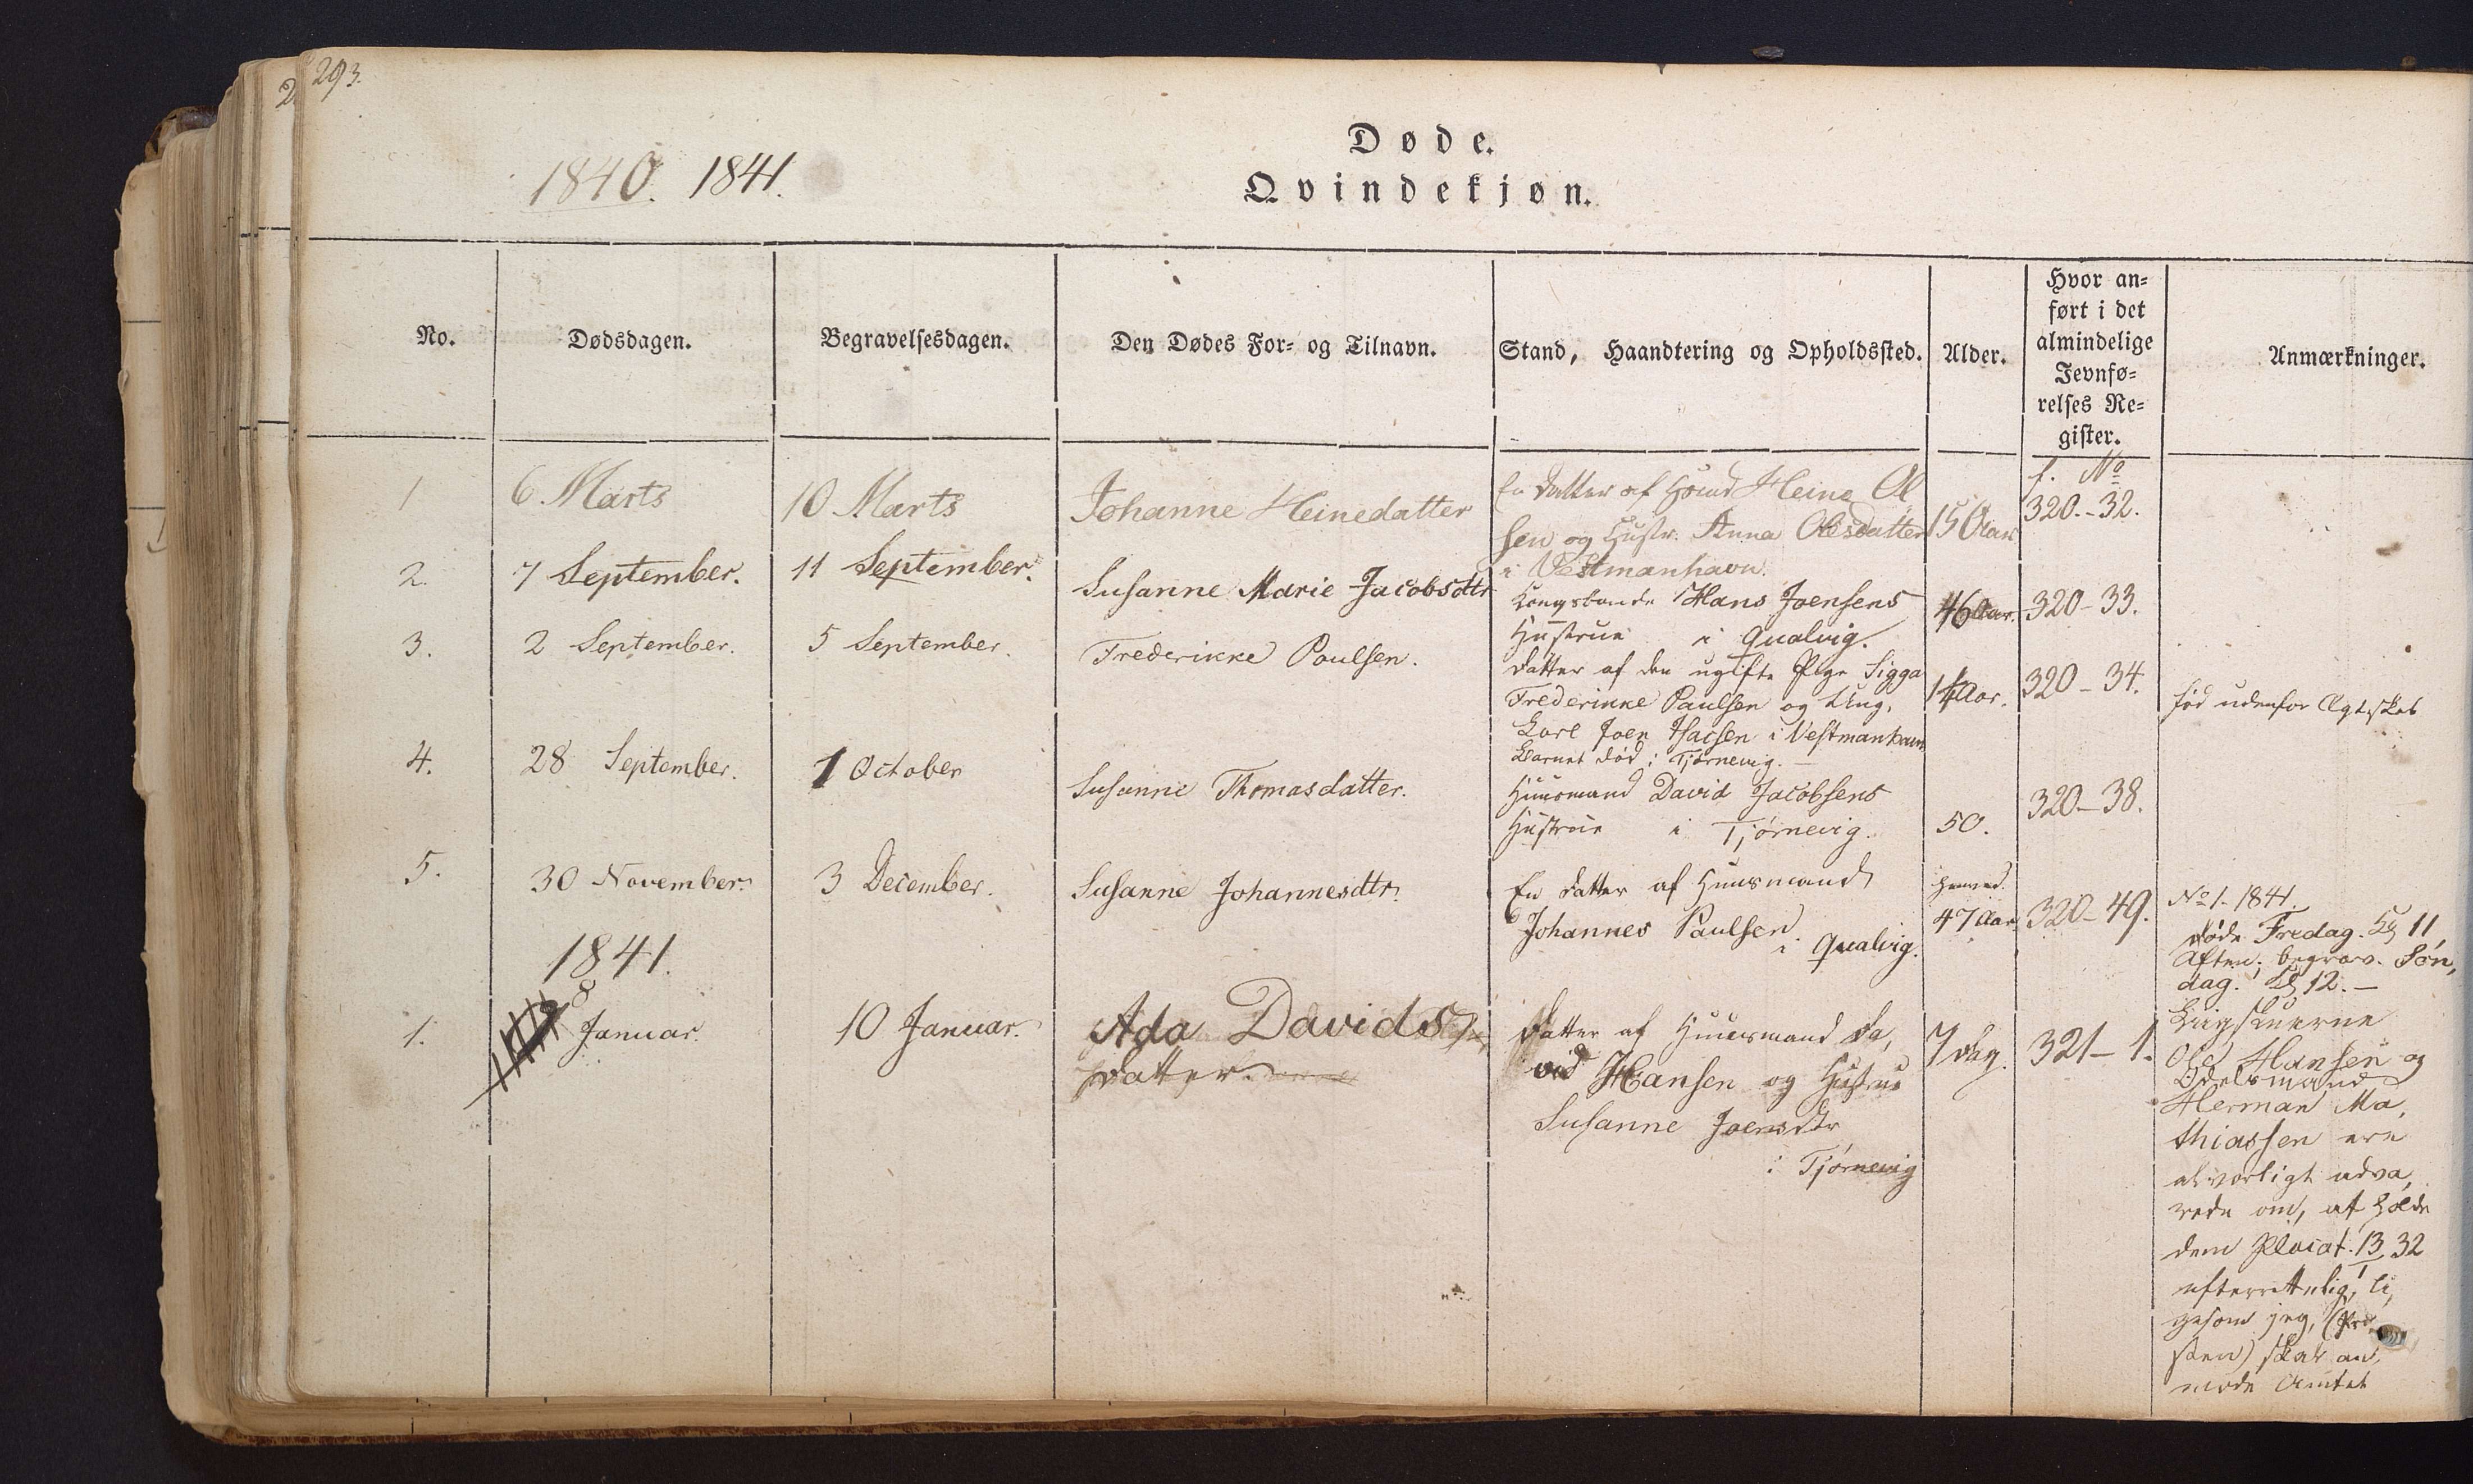 293.
1840. 1841.
Døde.
Qvindekjøn.
No.
Dødsdagen.
Begravelsesdagen.
Den Dødes For- og Tilnavn.
Stand, Haandtering og Opholdssted.
Alder.
Hvor an-
ført i det
almindelige
Jevnfø-
relses Re-
gister.
Anmærkninger.
1
6. Marts
10 Marts
Johanne Heinedatter
En Datter af Heine Ol
sen og Hustr. Anna Olesdatter
i Vestmanhavn.
15 Aar
f. No
320.-32.
2.
7 September.
11 September.
Susanne Marie Jacobsdttr
Kongsbonde Hans Joensens
Hustrue i Qualvig.
46 Aar.
320-33.
3.
2 September.
5 September.
Frederikke Poulsen.
Datter af den ugifte Pige Sigga
Frederikke Paulsen og Ung.
Karl Joen Isacsen i Vestmanhavn
Barnet død i Tjørnevig.
Aar.
320-34.
fød udenfor Ægteskab
4.
28 September.
1 October
Susanne Thomasdatter.
Huusmand David Jacobsens
Hustrue i Tjørnevig.
50.
320-38.
5.
30 November.
3 December.
Susanne Johannesdtr.
En Datter af Huusmand
Johannes Paulsen
i Qualvig.
47 Aar
320-49.
1841.
1.
8
Januar.
10 Januar.
Ada Davids
Datter.
Datter af Huusmand Da,
vid Hansen og Hustrue
Susanne Joensdtr
i Tjørnevig
7 Dag.
321-1.
No 1-1841.
døde Fredag. Kl 11
Aften, begrav. Søn,
dag. Kl 12.-
Liigskuerne
Ole Hansen og
Odelsmand
Herman Ma,
thiassen ere
alvorligt adva,
rede om, at holde
dem Placat. 13/1 32
efterrettelig, li,
gesom jeg, (Præ,
sten) skal an,
mode Amtet